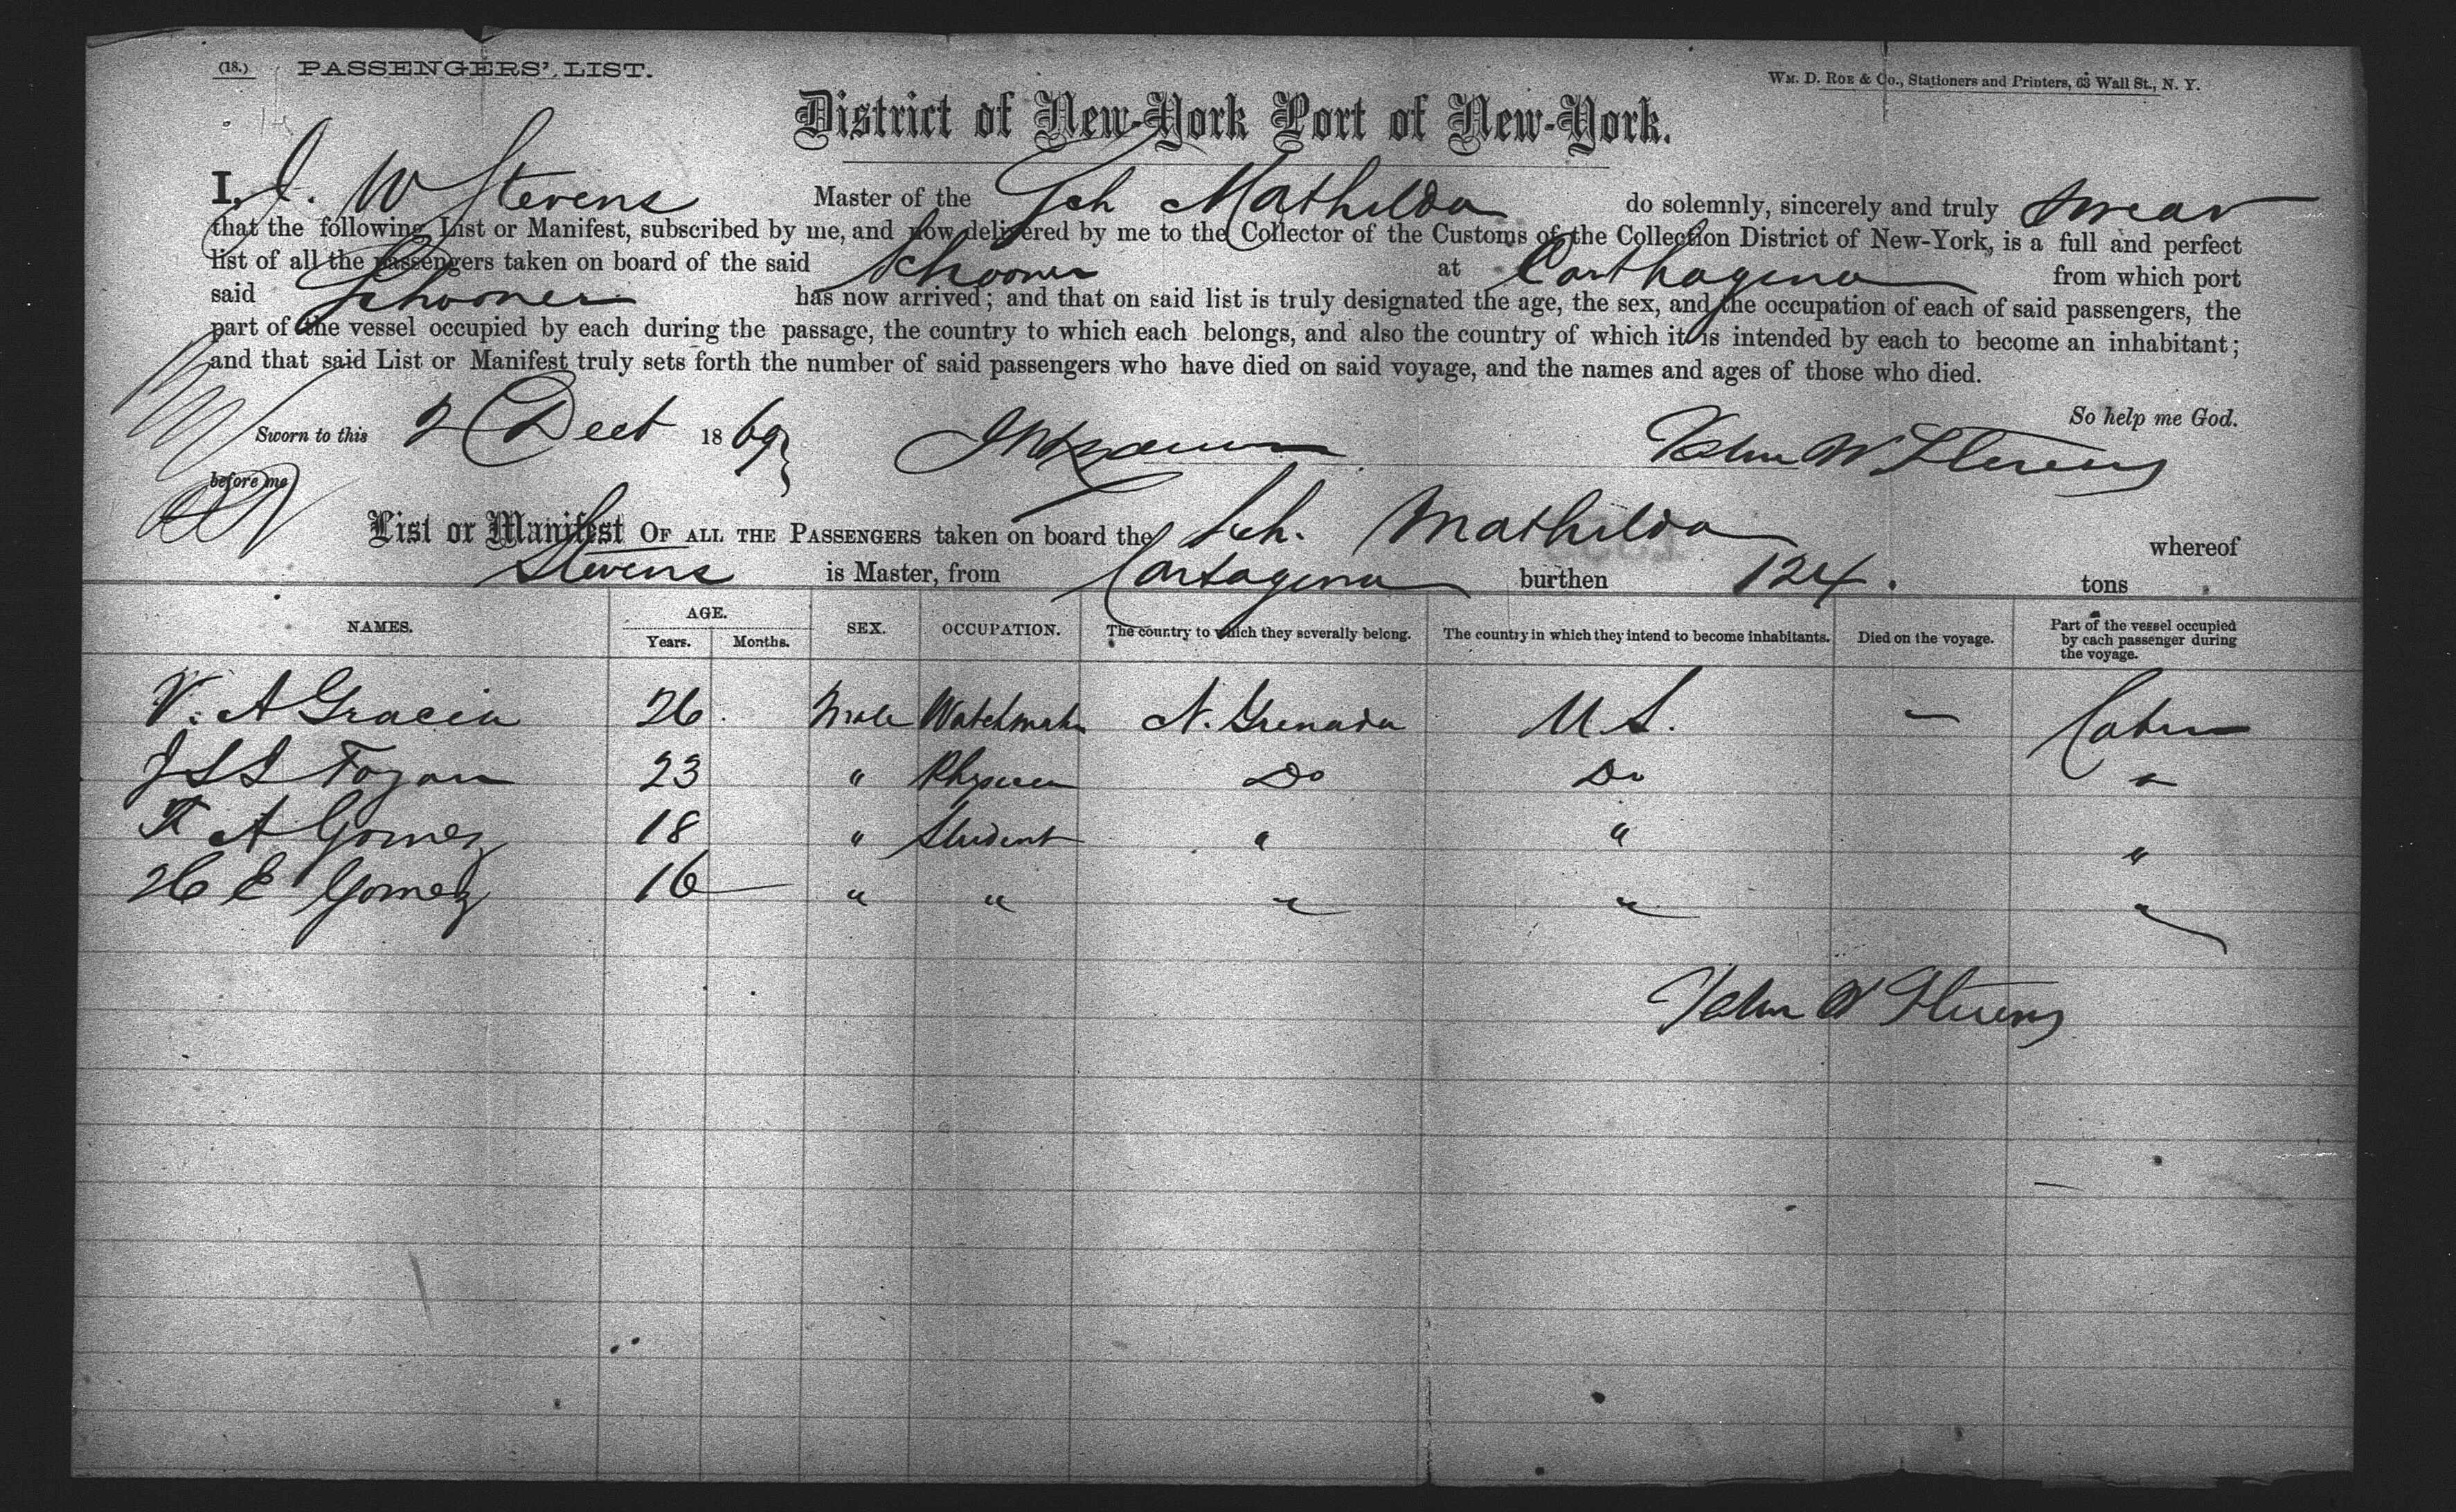 (18.) PASSENGERS' LIST.
Wm. D. Roe & Co., Stationers and Printers, 63 Wall St., N. Y.
District of New-York Port of New-York.
I, J. W Stevens Master of the Sch Mathilda do solemnly, sincerely and truly swear
that the following List or Manifest, subscribed by me, and now delivered by me to the Collector of the Customs of the Collection District of New-York, is a full and perfect
list of all the passengers taken on board of the said Schooner at Carthagena from which port
said Schooner has now arrived; and that on said list is truly designated the age, the sex, and the occupation of each of said passengers, the
part of the vessel occupied by each during the passage, the country to which each belongs, and also the country of which it is intended by each to become an inhabitant;
and that said List or Manifest truly sets forth the number of said passengers who have died on said voyage, and the names and ages of those who died.
So help me God.
Sworn to this 2 Dect 1869 John W Stevens
before me
List or Manifest OF ALL THE PASSENGERS taken on board the Sch. Mathilda whereof
Stevens is Master, from Cartagena burthen 124. tons
NAMES. AGE. Years. Months. SEX. OCCUPATION. The country to which they severally belong. The country in which they intend to become inhabitants. Died on the voyage. Part of the vessel occupied by each passenger during the voyage.
V. A Gracia 26. Male Watchmaker N. Grenada U S. — Cabin
23 " Physician Do Do "
F A Gomez 18 " Student " " "
H E Gomez 16 " " " " "
John W Stevens